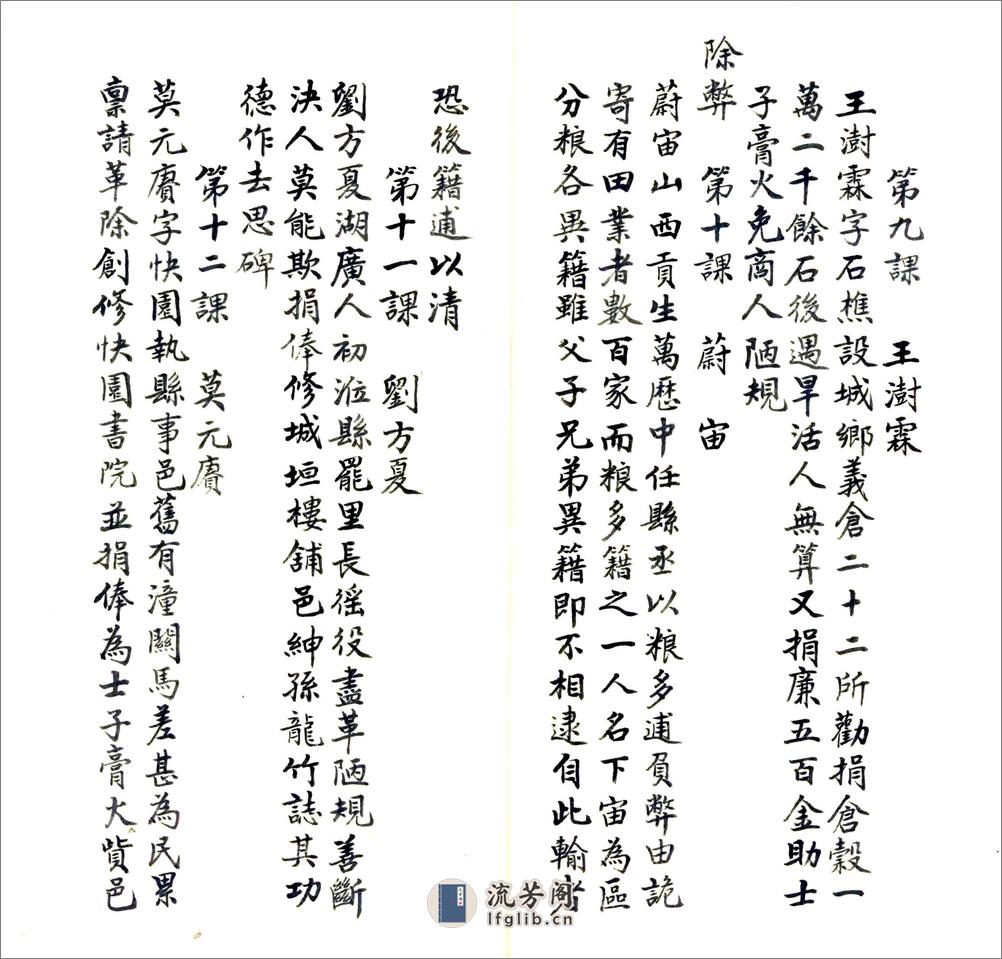 第九課　王澍霖
王澍霖字石樵設城鄉義倉二十二所勸捐倉穀一
萬二千餘石後遇旱活人無算又捐廉五百金助士
子膏火免商人陋規
除弊　第十課　蔚宙
蔚宙山西貢生萬歷中任縣丞以粮多逋負弊由詭
寄有田業者數百家而粮多籍之一人名下宙為區
分粮各異籍雖父子兄弟異籍即不相逮自此輸者
恐後籍逋以清
第十一課　劉方夏
劉方夏湖廣人初涖縣罷里長徭役盡革陋規善斷
決人莫能欺捐俸修城垣樓舖邑紳孫龍竹誌其功
德作去思碑
第十二課　莫元賡
莫元賡字快園執縣事邑舊有潼關馬差甚為民累
禀請革除創修快園書院並捐俸為士子膏火貲邑
流芳阁
lfglib.cn